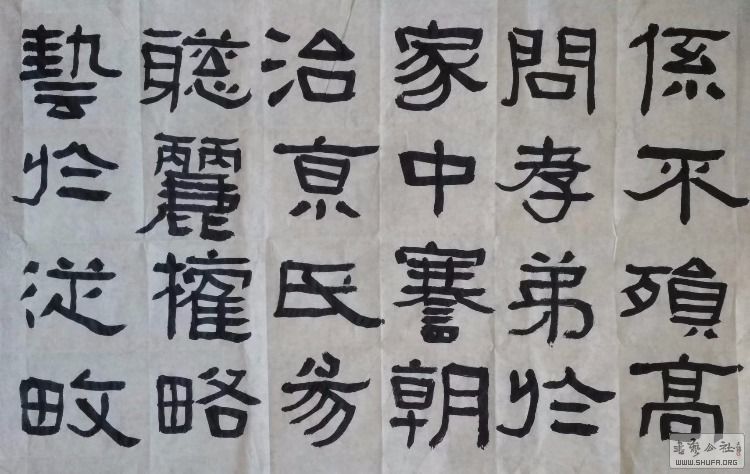 係不殞高
問孝弟於
家中謇朝
治京氏易
聰麗權略
藝於從畋
WWW.SHUFA.ORG